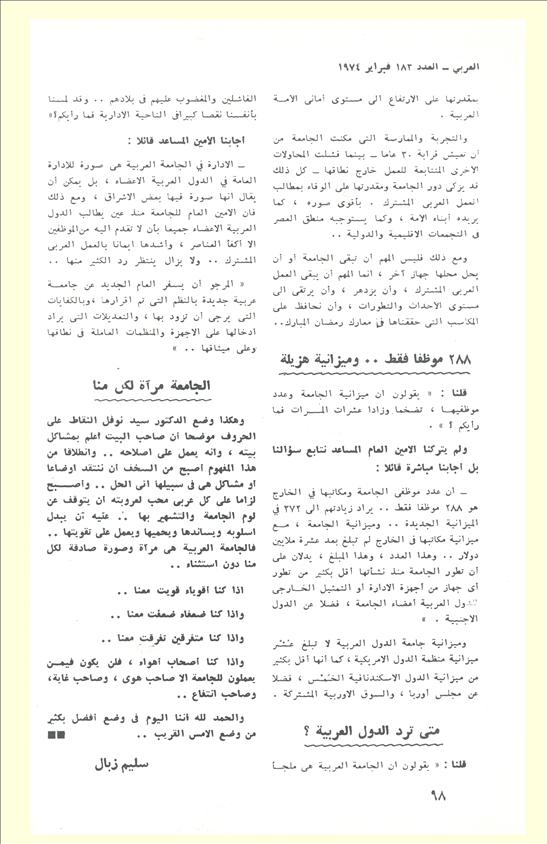 العربي ــ العدد ١٨٣ فبراير ١٩٧٤
بمقدرتها على الارتفاع الى مستوى أمانى الامة
العربية .
والتجربة والممارسة التى مكنت الجامعة من
أن تعيش قرابة ٣٠ عاما ــ بينما فشلت المحاولات
الاخرى المتتابعة للعمل خارج نطاقها ــ كل ذلك
قد يزكى دور الجامعة ومقدرتها على الوفاء بمطالب
العمل العربى المشترك . بأقوى صوره ، كما
يريده أبناء الامة ، وكما يستوجبه منطق العصر
فى التجمعات الاقليمية والدولية ..
ومع ذلك فليس المهم أن تبقى الجامعة أو أن
يحل محلها جهاز آخر ، انما المهم أن يبقى العمل
العربى المشترك ، وأن يزدهر ، وأن يرتقى الى
مستوى الاحداث والتطورات ، وأن نحافظ على
المكاسب التى حققناها فى معارك رمضان المبارك..
٢٨٨ موظفا فقط .. وميزانية هزيلة
قلنا : « يقولون ان ميزانية الجامعة وعدد
موظفيها ، تضخما وزادا عشرات المـرات فما
رأيكم ؟ » .
ولم يتركنا الامين العام المساعد نتابع سؤالنا
بل اجابنا مباشرة قائلا :
ــ ان عدد موظفى الجامعة ومكاتبها في الخارج
هو ٢٨٨ موظفا فقط .. يراد زيادتهم الى ٣٧٢ في
الميزانية الجديدة .. وميزانية الجامعة ، مـع
ميزانية مكاتبها فى الخارج لم تبلغ بعد عشرة ملايين
دولار .. وهذا العدد ، وهذا المبلغ ، يدلان على
أن تطور الجامعة منذ نشأتها أقل بكثير من تطور
أى جهاز من أجهزة الادارة أو التمثيل الخـارجى
للدول العربية أعضاء الجامعة ، فضلا عن الدول
الاجنبية . »
وميزانية جامعة الدول العربية لا تبلغ عُشر
ميزانية منظمة الدول الامريكية ، كما أنها أقل بكثير
من ميزانية الدول الاسكندنافية الخمس ، فضلا
عن مجلس أوربا ، والسوق الاوربية المشتركة .
متى ترد الدول العربية ؟
قلنا : « يقولون ان الجامعة العربية هى ملجـأ
الفاشلين والمغضوب عليهم فى بلادهم .. وقد لمسنا
بأنفسنا نقصا كبيرا فى الناحية الادارية فما رأيكم؟»
أجابنا الامين المساعد قائلا :
ــ الادارة فى الجامعة العربية هى صورة للادارة
العامة في الدول العربية الاعضاء ، بل يمكن أن
يقال انها صورة فيها بعض الاشراق ، ومع ذلك
فان الامين العام للجامعة منذ عين يطالب الدول
العربية الاعضاء جميعا بأن لا تقدم اليه من الموظفين
الا أكفأ العناصر ، وأشدها ايمانا بالعمل العربى
المشترك .. ولا يزال ينتظر رد الكثير منها ..
« المرجو أن يسفر العام الجديد عن جامعـة
عربية جديدة بالنظم التى تم اقرارها ،وبالكفايات
التى يرجى أن تزود بها ، والتعديلات التى يراد
ادخالها على الاجهزة والمنظمات العاملة فى نطاقها
وعلى ميثاقها .. »
الجامعة مرآة لكل منا
وهكذا وضع الدكتور سيد نوفل النقاط على
الحروف موضحا أن صاحب البيت أعلم بمشاكل
بيته ، وانه يعمل على اصلاحه .. وانطلاقا من
هذا المفهوم أصبح من السخف ان ننتقد أوضاعا
او مشاكل هى فى سبيلها الى الحل .. وأصـبح
لزاما على كل عربى محب لعروبته ان يتوقف عن
لوم الجامعة والتشهير بها .. عليه أن يبدل
اسلوبه ويساندها ويحميها ويعمل على تقويتها ..
فالجامعة العربية هى مرآة وصورة صادقة لكل
منا دون استثناء ..
اذا كنا أقوياء قويت معنا ..
واذا كنا ضعفاء ضعفت معنا ..
واذا كنا متفرقين تفرقت معنا ..
واذا كنا أصحاب أهواء ، فلن يكون فيمـن
يعملون للجامعة الا صاحب هوى ، وصاحب غاية،
وصاحب انتفاع ..
والحمد لله أننا اليوم فى وضع أفضل بكثير
من وضع الامس القريب ..
سليم زبال
٩٨